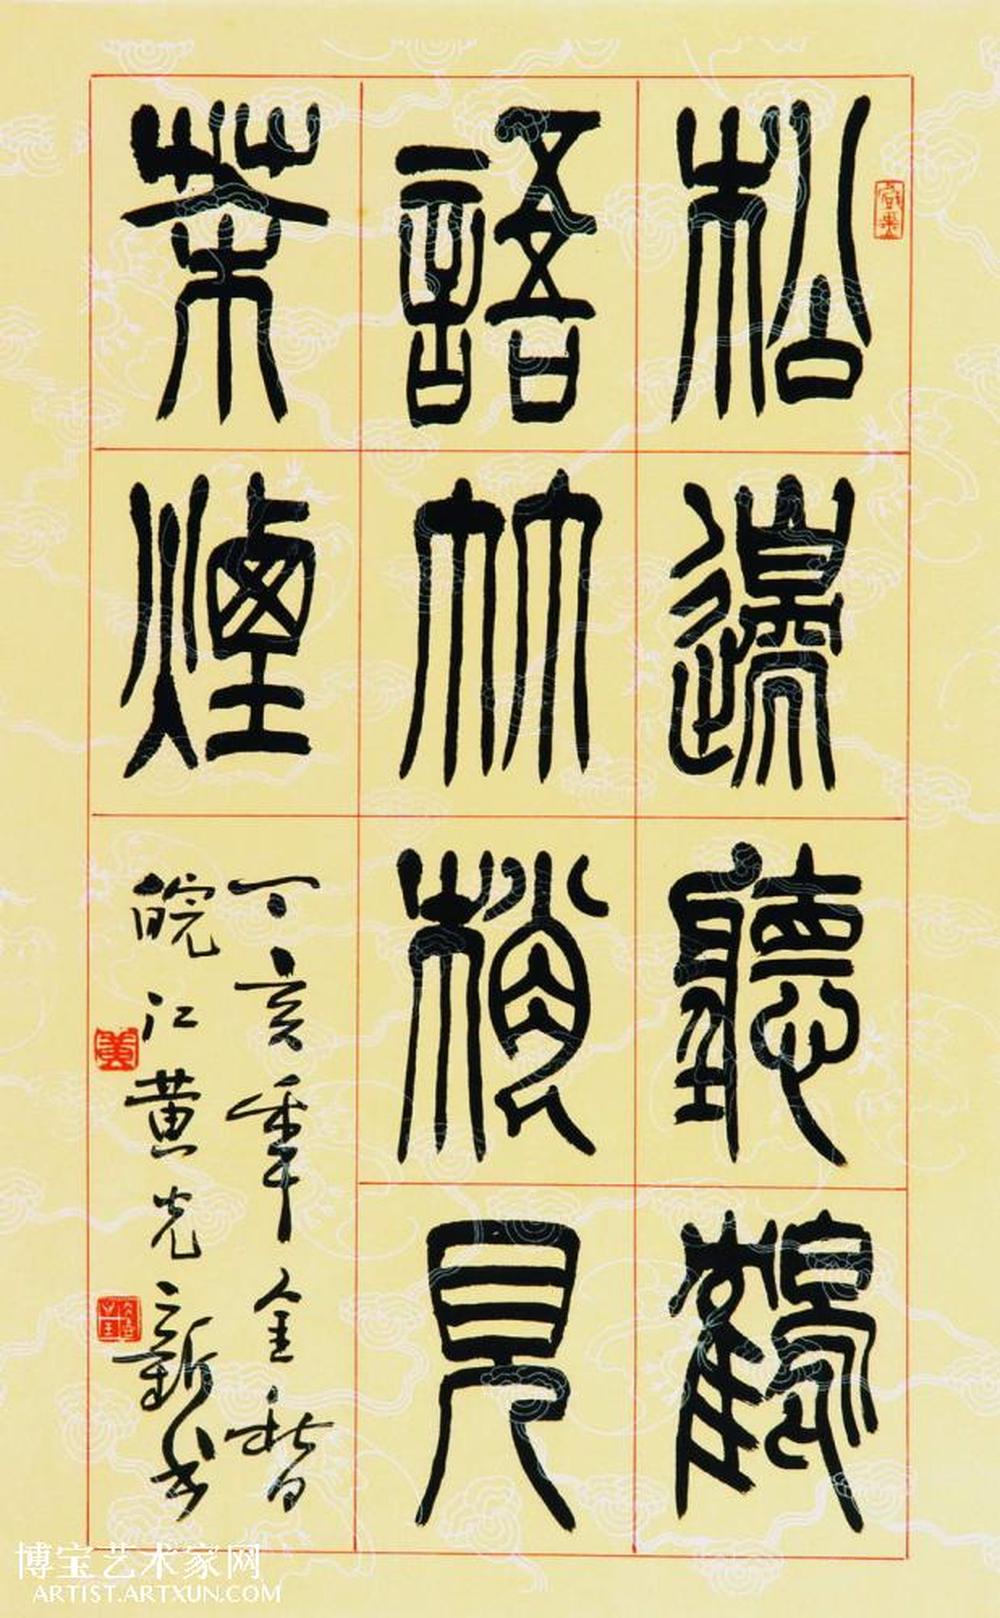 松邊聽鶴
語竹梢見
茶煙
丁亥年金秋
皖江黄光新书
博宝艺术家网
ARTIST.ARTXUN.COM